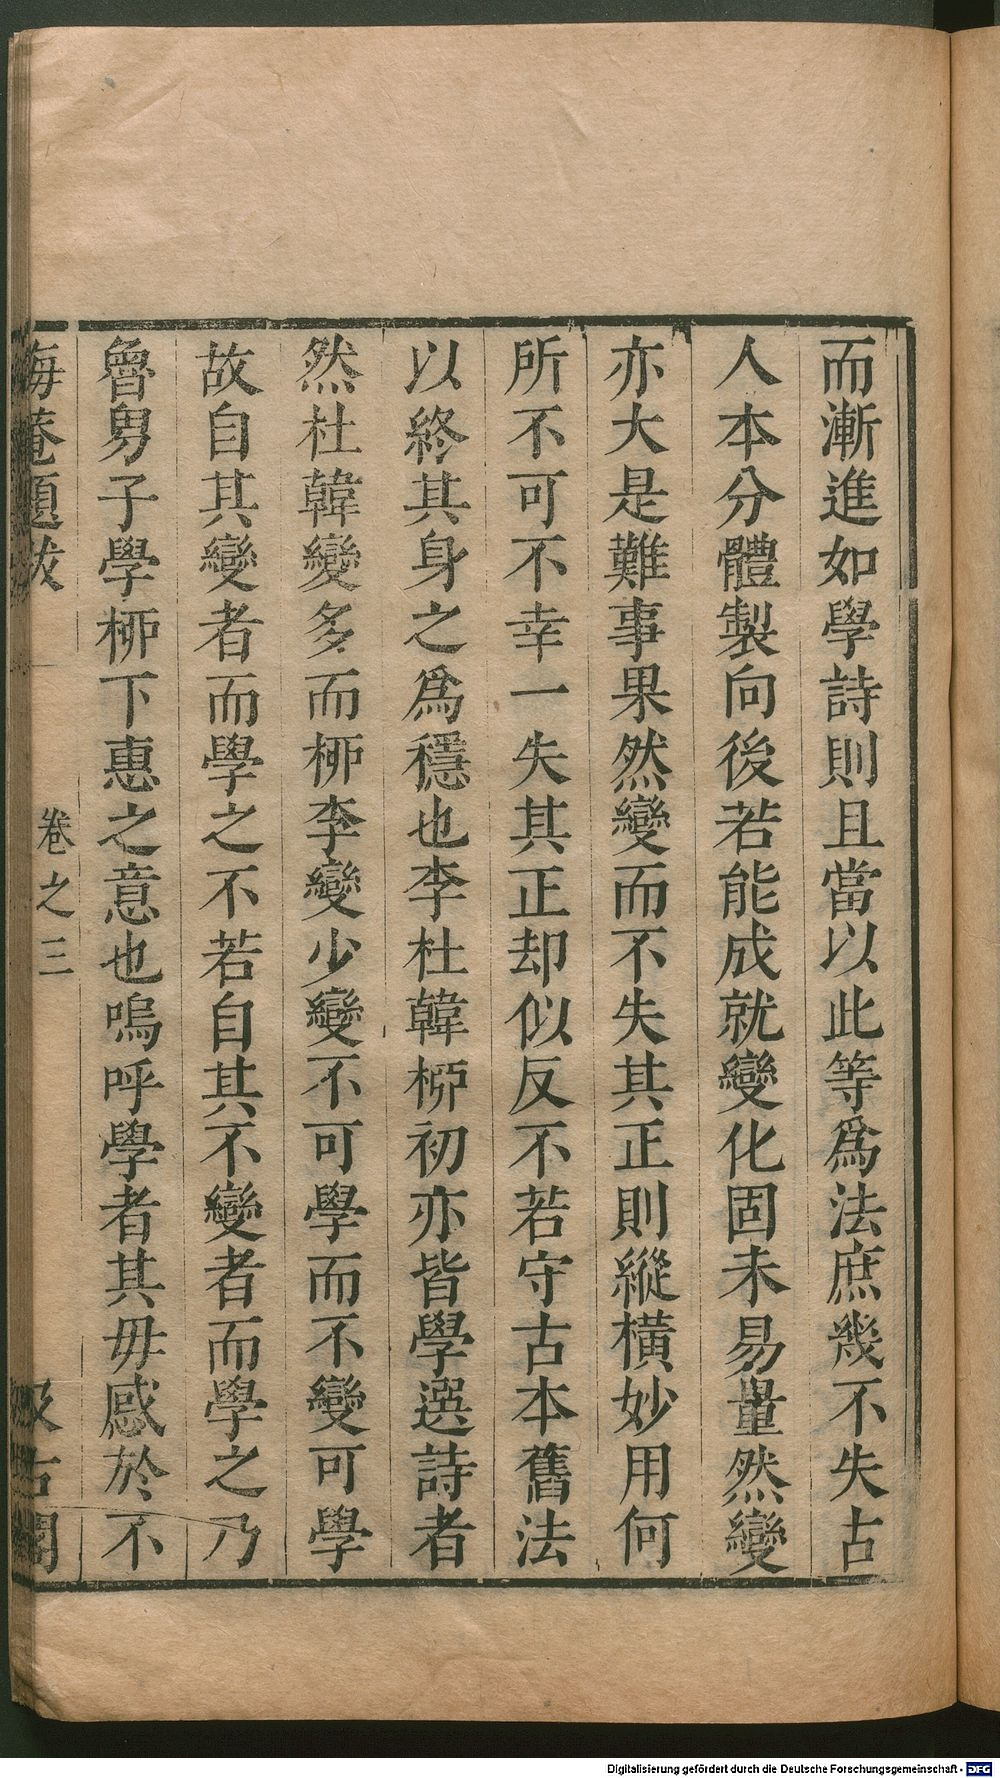 而漸進如學詩則且當以此等爲法庶幾不失古
人本分體製向後若能成就變化固未易量然變
亦大是難事果然變而不失其正則縱橫妙用何
所不可不幸一失其正却似反不若守古本舊法
以終其身之爲穩也李杜韓桺初亦皆學選詩者
然杜韓變多而桺李變少變不可學而不變可學
故自其變者而學之不若自其不變者而學之乃
魯男子學桺下惠之意也嗚呼學者其毋惑於不
晦菴題跋
卷之三
汲古閣
Digitalisierung gefördert durch die Deutsche Forschungsgemeinschaft - DFG